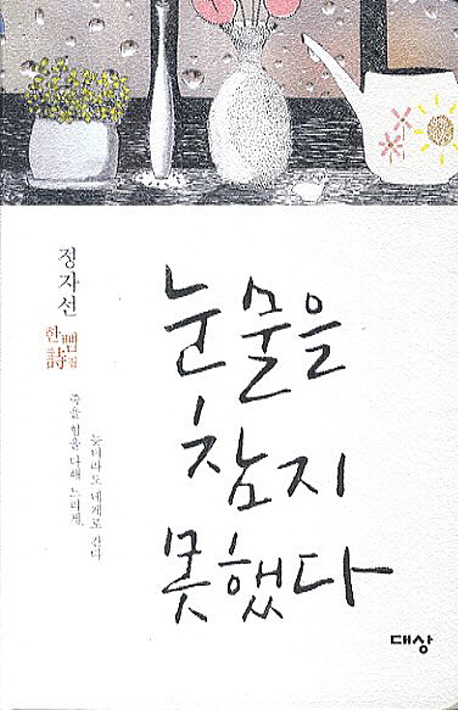 정자선
한뼘
詩집
죽을 힘을 다해 느리게,
늦더라도 네게로 간다
눈물을
참지
못했다
대상